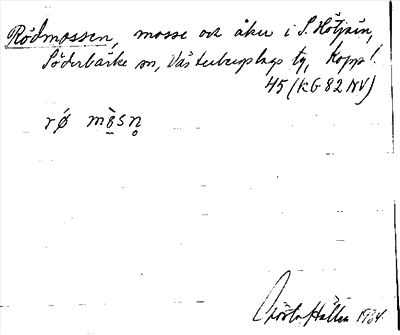 Rödmossen, mosse och åker i S. Hötjärn,
Söderbärke sn, Västerbergslags tg, Kopp l.
45 (KG 82 NV)
rǿ mɞ̀sn̥
Gösta Hallén 1934.